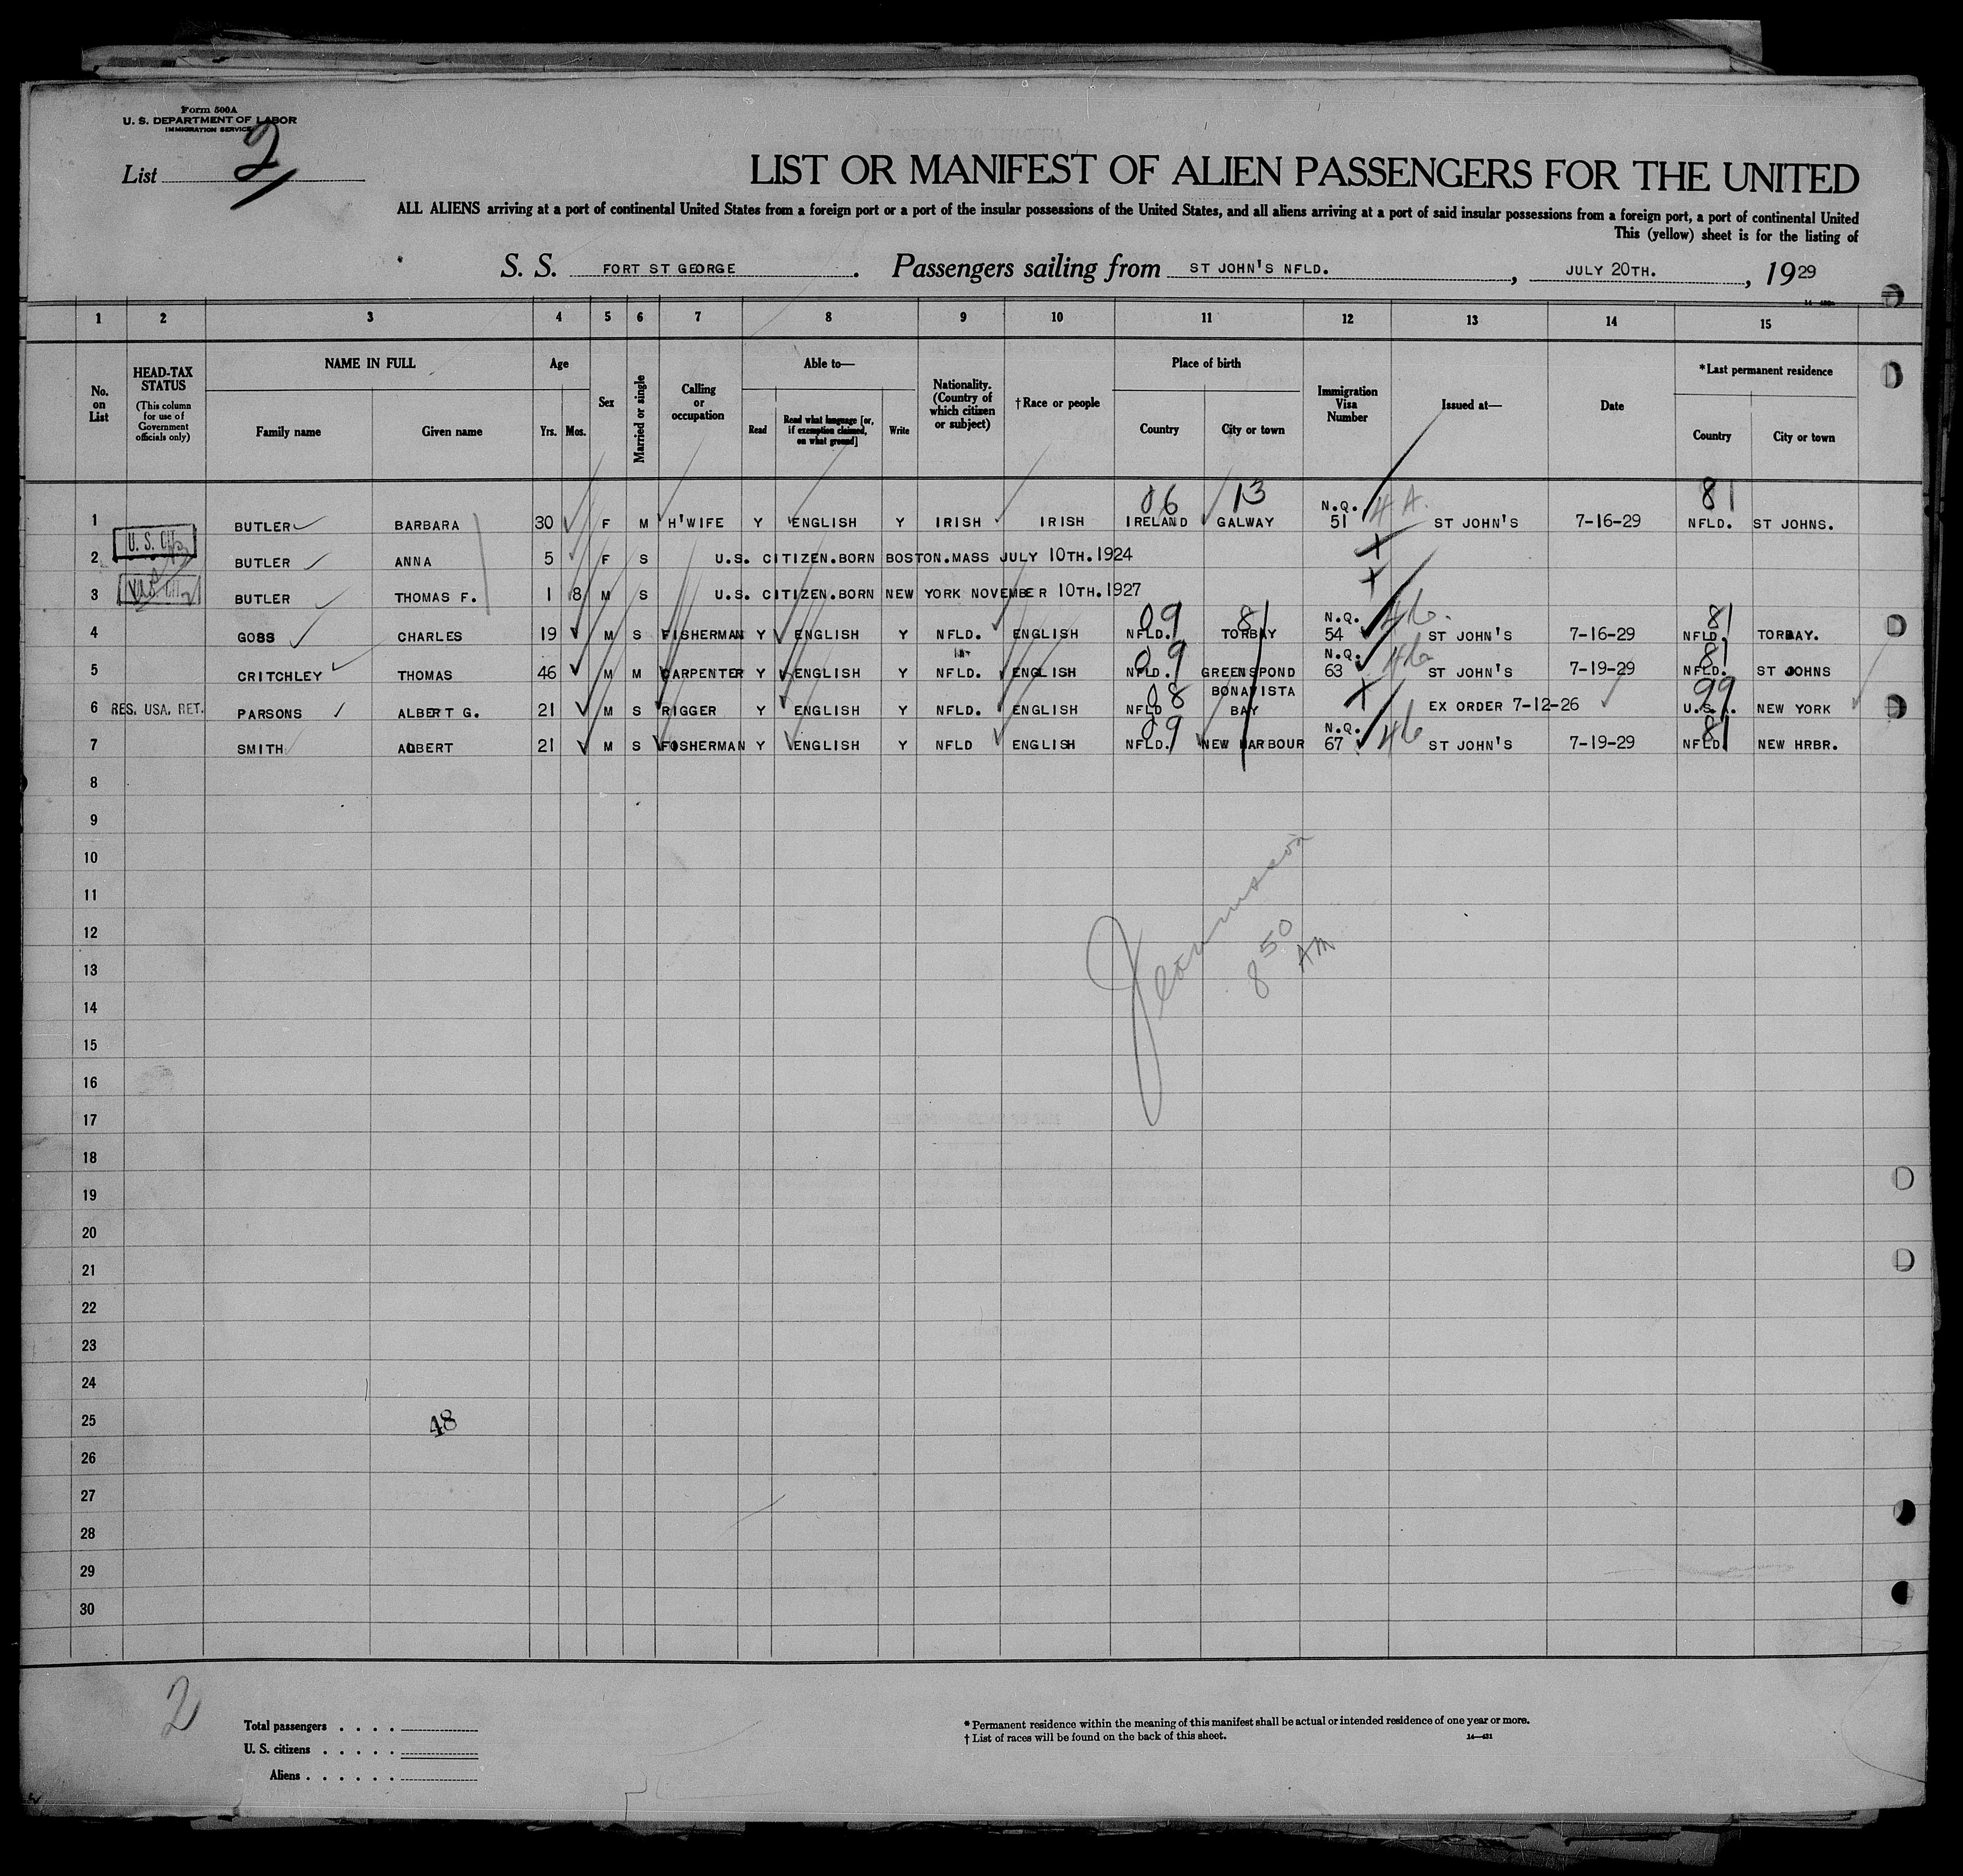 Form 500A
U. S. DEPARTMENT OF LABOR
IMMIGRATION SERVICE
List 2
LIST OR MANIFEST OF ALIEN PASSENGERS FOR THE UNITED
ALL ALIENS arriving at a port of continental United States from a foreign port or a port of the insular possessions of the United States, and all aliens arriving at a port of said insular possessions from a foreign port, a port of continental United
This (yellow) sheet is for the listing of
S. S. FORT ST GEORGE . Passengers sailing from ST JOHN'S NFLD. , JULY 20TH. , 1929
1 2 3 4 5 6 7 8 9 10 11 12 13 14 15
No. on List
HEAD-TAX STATUS
(This column for use of Government officials only)
NAME IN FULL
Family name Given name
Age
Yrs. Mos.
Sex
Married or single
Calling or occupation
Able to—
Read
Read what language [or, if exemption claimed, on what ground]
Write
Nationality. (Country of which citizen or subject)
†Race or people
Place of birth
Country City or town
Immigration Visa Number
Issued at—
Date
*Last permanent residence
Country City or town
06 13 81
1 BUTLER BARBARA 30 F M H'WIFE Y ENGLISH Y IRISH IRISH IRELAND GALWAY N.Q. 51 4A. ST JOHN'S 7-16-29 NFLD. ST JOHNS.
2 U. S. CIT. BUTLER ANNA 5 F S U.S. CITIZEN.BORN BOSTON.MASS JULY 10TH.1924
3 U.S. CIT. BUTLER THOMAS F. 1 8 M S U.S. CITIZEN.BORN NEW YORK NOVEMBER 10TH.1927
09 81 81
4 GOSS CHARLES 19 M S FISHERMAN Y ENGLISH Y NFLD. ENGLISH NFLD. TORBAY N.Q. 54 4b. ST JOHN'S 7-16-29 NFLD. TORBAY.
09 81
5 CRITCHLEY THOMAS 46 M M CARPENTER Y ENGLISH Y NFLD. ENGLISH NFLD. GREENSPOND N.Q. 63 4b ST JOHN'S 7-19-29 NFLD. ST JOHNS
08 99
6 RES. USA. RET. PARSONS ALBERT G. 21 M S RIGGER Y ENGLISH Y NFLD. ENGLISH NFLD BONAVISTA BAY EX ORDER 7-12-26 U.S.A. NEW YORK
09 81
7 SMITH ALBERT 21 M S FOSHERMAN Y ENGLISH Y NFLD ENGLISH NFLD. NEW HARBOUR N.Q. 67 4b ST JOHN'S 7-19-29 NFLD NEW HRBR.
8
9
10
11
12
8 50 AM
13
14
15
16
17
18
19
20
21
22
23
24
25 48
26
27
28
29
30
2
Total passengers . . . .
U. S. citizens . . . . .
Aliens . . . . . .
* Permanent residence within the meaning of this manifest shall be actual or intended residence of one year or more.
† List of races will be found on the back of this sheet.
14—431